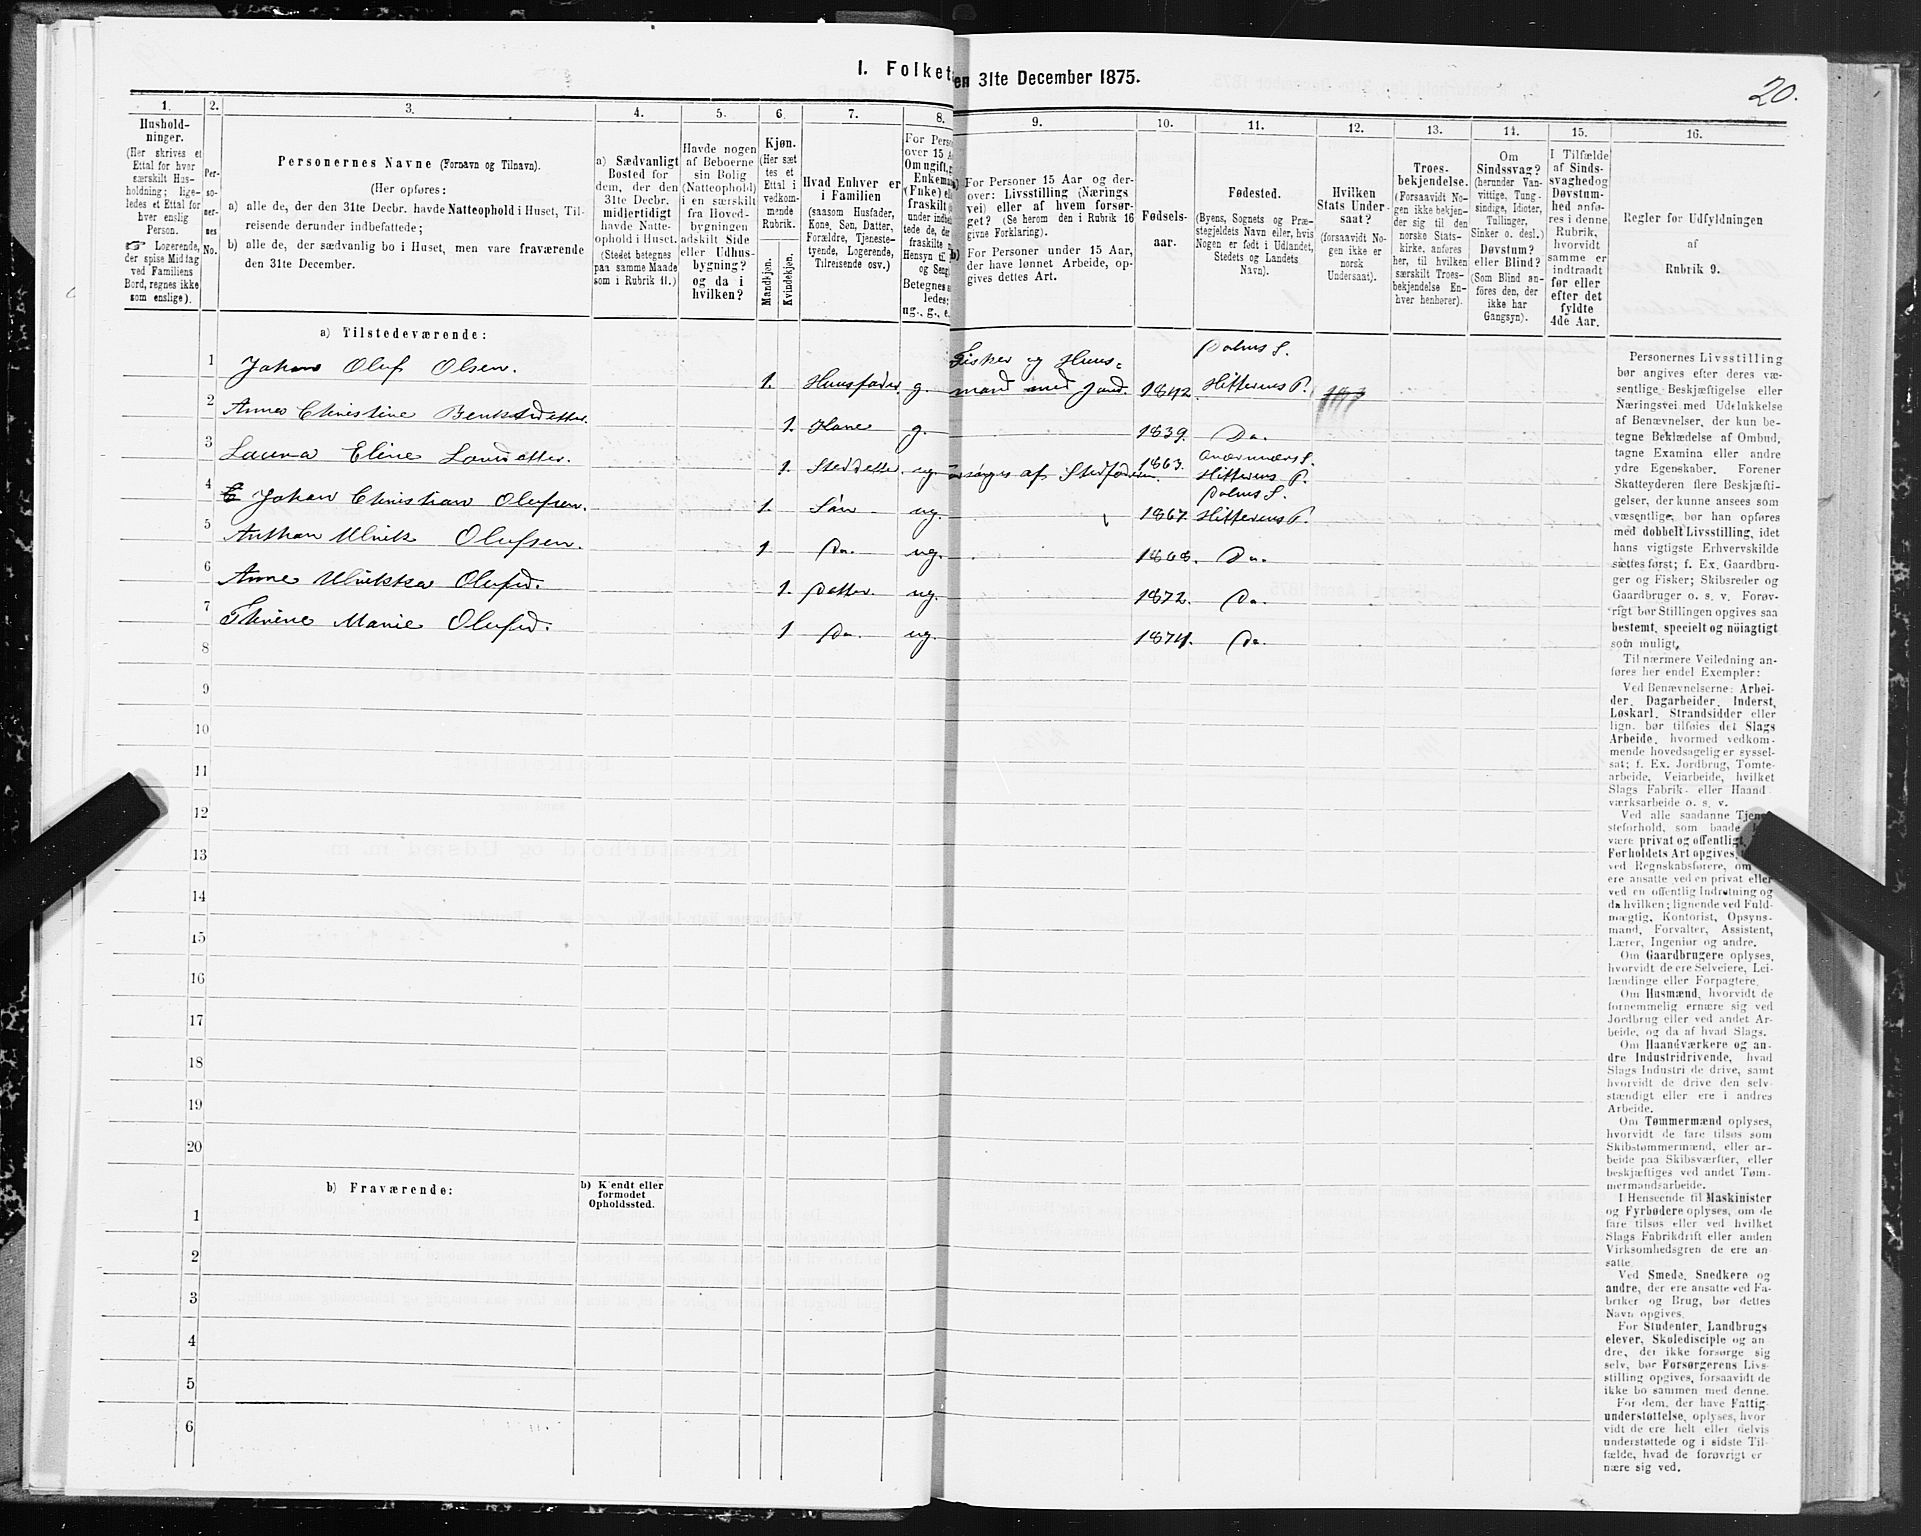 I. Folket
en 31te December 1875.
20.
1.
Hushold-
ninger.
(Her skrives et
Ettal for hver
særskilt Hus-
holdning; lige-
ledes et Ettal for
hver enslig
Person.
☞ Logerende,
der spise Middag
ved Familiens
Bord, regnes ikke
som enslige).
2.
Per-
so-
ner-
nes
No.
3.
Personernes Navne (Fornavn og Tilnavn).
(Her opføres:
a) alle de, der den 31te Decbr. havde Natteophold i Huset, Til-
reisende derunder indbefattede;
b) alle de, der sædvanlig bo i Huset, men vare fraværende
den 31te December.
4.
a) Sædvanligt
Bosted for
dem, der den
31te Decbr.
midlertidigt
havde Natte-
ophold i Huset.
(Stedet betegnes
paa samme Maade
som i Rubrik 11.)
5.
Havde nogen
af Beboerne
sin Bolig
(Natteophold)
i en særskilt
fra Hoved-
bygningen
adskilt Side
eller Udhus-
bygning?
og da i
hvilken?
6.
Kjøn.
(Her sæt
tes et
Ettal i
vedkom-
mende
Rubrik.
Mandkjøn.
Kvindekjøn.
7.
Hvad Enhver er
i Familien
(saasom Husfader,
Kone, Søn, Datter,
Forældre, Tjeneste-
tyende, Logerende,
Tilreisende osv.)
8.
For Perso
over 15 A
Om ugift, g
Enkema
(Enke) el
fraskilt
under indbe
tede de, de
fraskilte
Hensyn til
og Seng
Betegnes s
ledes:
ug., g., e.
9.
a) For Personer 15 Aar og der-
over: Livsstilling (Nærings
vei) eller af hvem forsør-
get? (Se herom den i Rubrik 16
givne Forklaring).
b) For Personer under 15 Aar,
der have lønnet Arbeide, op-
gives dettes Art.
10.
Fødsels-
aar.
11.
Fødested.
(Byens, Sognets og Præ-
stegjeldets Navn eller, hvis
Nogen er født i Udlandet,
Stedets og Landets
Navn).
12.
Hvilken
Stats Under
saat?
(forsaavidt No-
gen ikke er
norsk
Undersaat).
13.
Troes-
bekjendelse.
(Forsaavidt No-
gen ikke bekjen-
der sig til den
norske Stats-
kirke, anføres
her, til hvilken
særskilt Troes-
bekjendelse En-
hver henhører).
14.
Om
Sindssvag?
(herunder Van-
vittige, Tung-
sindige, Idioter,
Tullinger,
Sinker o. desl.)
Døvstum?
eller Blind?
(Som Blind an-
føres den, der
ikke har
Gangsyn).
15.
I Tilfælde
af Sinds-
svaghed og
Døvstum-
hed anfø-
res i denne
Rubrik,
hvorvidt
samme er
indtraadt
før eller
efter det
fyldte
4de Aar.
16.
Regler for Udfyldningen
af
Rubrik 9.
a) Tilstedeværende:
1 Johan Oluf Olsen. 1. Huusfader. g. Fisker og Huus=
mand med Jord. 1842. Dolmø S.
Hitterens P.
2 Anne Christine Bentsdatter. 1. Kone g. 1839. Do.
3 Laura Eline Larsdatter. 1. Steddatter. ug forsørges af Stedfaderen. 1863. S.
Hitterens P.
4 Johan Christian Olufsen. 1. Søn ug. 1867. Dolmø S.
Hitterens P.
5 Anthon Ulrik Olufsen. 1 Do. ug. 1868. Do.
6 Anne Ulrikka Olufsd. 1. Datter. ug. 1872. Do.
7 Thrine Marie Olufsd. 1 Do. ug. 1874. Do.
8
9
10
11
12
13
14
15
16
17
18
19
20
b) Fraværende:
b) Kjendt eller
formodet
Opholdssted.
1
2
3
4
5
6
Personernes Livsstilling
bør angives efter deres væ-
sentlige Beskjæftigelse eller
Næringsvei med Udelukkelse
af Benævnelser, der kun be-
tegne Beklædelse af Ombud,
tagne Examina eller andre
ydre Egenskaber. Forener
Skatteyderen flere Beskjæfti-
gelser, der kunne ansees som
væsentlige, bør han opføres
med dobbelt Livsstilling, idet
hans vigtigste Erhvervskilde
sættes først; f. Ex. Gaardbru-
ger og Fisker; Skibsreder og
Gaardbruger o. s. v. Forøv-
rigt bør Stillingen opgives saa
bestemt, specielt og nöiagtigt
som muligt.
Til nærmere Veiledning an-
føres her endel Exempler:
Ved Benævnelserne: Arbei-
der, Dagarbeider, Inderst,
Løskarl, Strandsidder eller
lign. bør tilføies det Slags
Arbeide, hvormed vedkom-
mende hovedsagelig er syssel-
sat; f. Ex. Jordbrug, Tomte-
arbeide, Veiarbeide, hvilket
Slags Fabrik- eller Haand
værksarbeide o. s. v.
Ved alle saadanne Tjene
steforhold, som baade
være privat og offentligt,
Forholdets Art opgives,
ved Regnskabsførere, om
ere ansatte ved en privat eller
ved en offentlig Indretning og
da hvilken; lignende ved Fuld-
mægtig, Kontorist, Opsyns-
mand, Forvalter, Assistent,
Lærer, Ingeniør og andre.
Om Gaardbrugere oplyses,
hvorvidt de ere Selveiere, Lei-
lændinge eller Forpagtere.
Om Husmænd, hvorvidt de
fornemmelig ernære sig ved
Jordbrug eller ved andet Ar-
beide, og da af hvad Slags.
Om Haandværkere og an-
dre Industridrivende, hvad
Slags Industri de drive, samt
hvorvidt de drive den selv-
stændigt eller ere i andres
Arbeide.
Om Tømmermænd oplyses,
hvorvidt de fare tilsøs som
Skibstømmermænd, eller ar-
beide paa Skibsværfter, eller
beskjæftiges ved andet Tøm-
mermandsarbeide.
I Henseende til Maskinister
og Fyrbødere oplyses, om de
fare tilsøs eller ved hvilket
Slags Fabrikdrift eller anden
Virksomhedsgren de ere an-
satte.
Ved Smede, Snedkere og
andre, der ere ansatte ved Fa-
briker og Brug, bør dettes
Navn opgives.
For Studenter, Landbrugs
elever, Skoledisciple og an-
dre, der ikke forsørge sig
selv, bør Forsørgerens Livs-
stilling opgives, forsaavidt de
ikke bo sammen med denne.
For dem, der have Fattig-
understøttelse, oplyses, hvor
vidt de ere helt eller delvis
understøttede og i sidste Til-
fælde, hvad de forøvrigt er
nære sig ved.